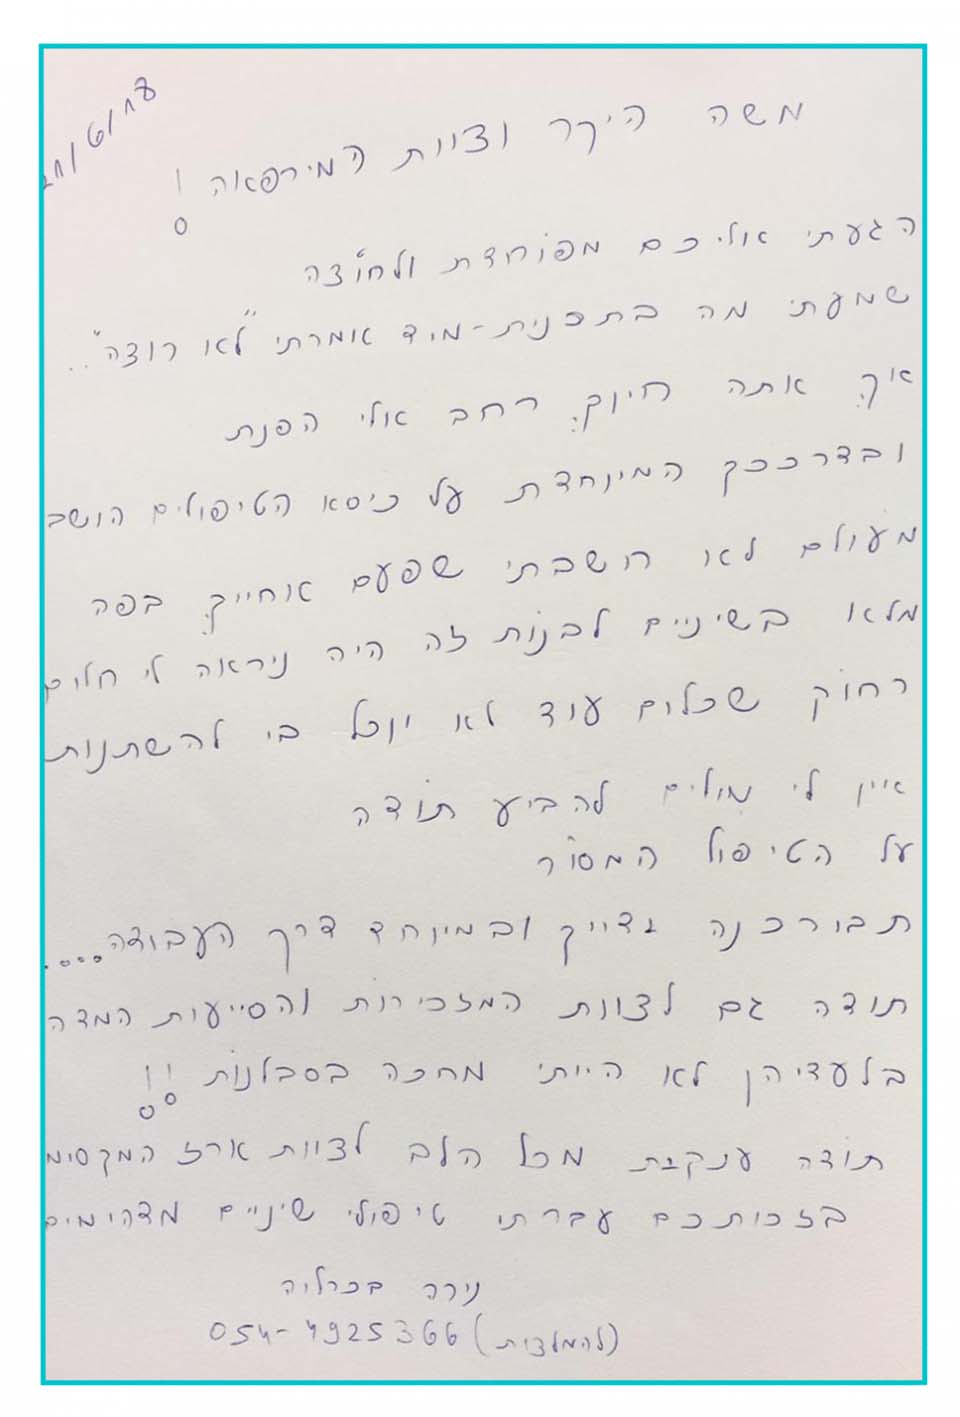 משה היקר וצוות המירפאה!
הגעתי אליכם מפוחדת ולחוצה
שמעתי מה בתכנית-מיד אמרתי "לא רוצה"...
אך אתה חיוך רחב אלי הפנת
ובדרככך המיוחדת על כיסא הטיפולים הושב
מעולם לא חשבתי שפעם אחייך בפה
מלא בשיניים לבנות זה היה ניראה לי חלום
רחוק שכלום עוד לא יוכל בי להשתנות
איין לי מילים להביע תודה
על הטיפול המסור
תבורכנה ובמיוחד דרך העבודה....
תודה גם לצוות המזכירות והסייעות המדה
בלעדיהן לא הייתי מחכה בסבלנות!!
תודה ענקית מכל הלב לצוות ארז המקסימ
בזכותכם עברתי טיפולי שיניים מדהימים
נירה
(להמלצות) 054-4925366